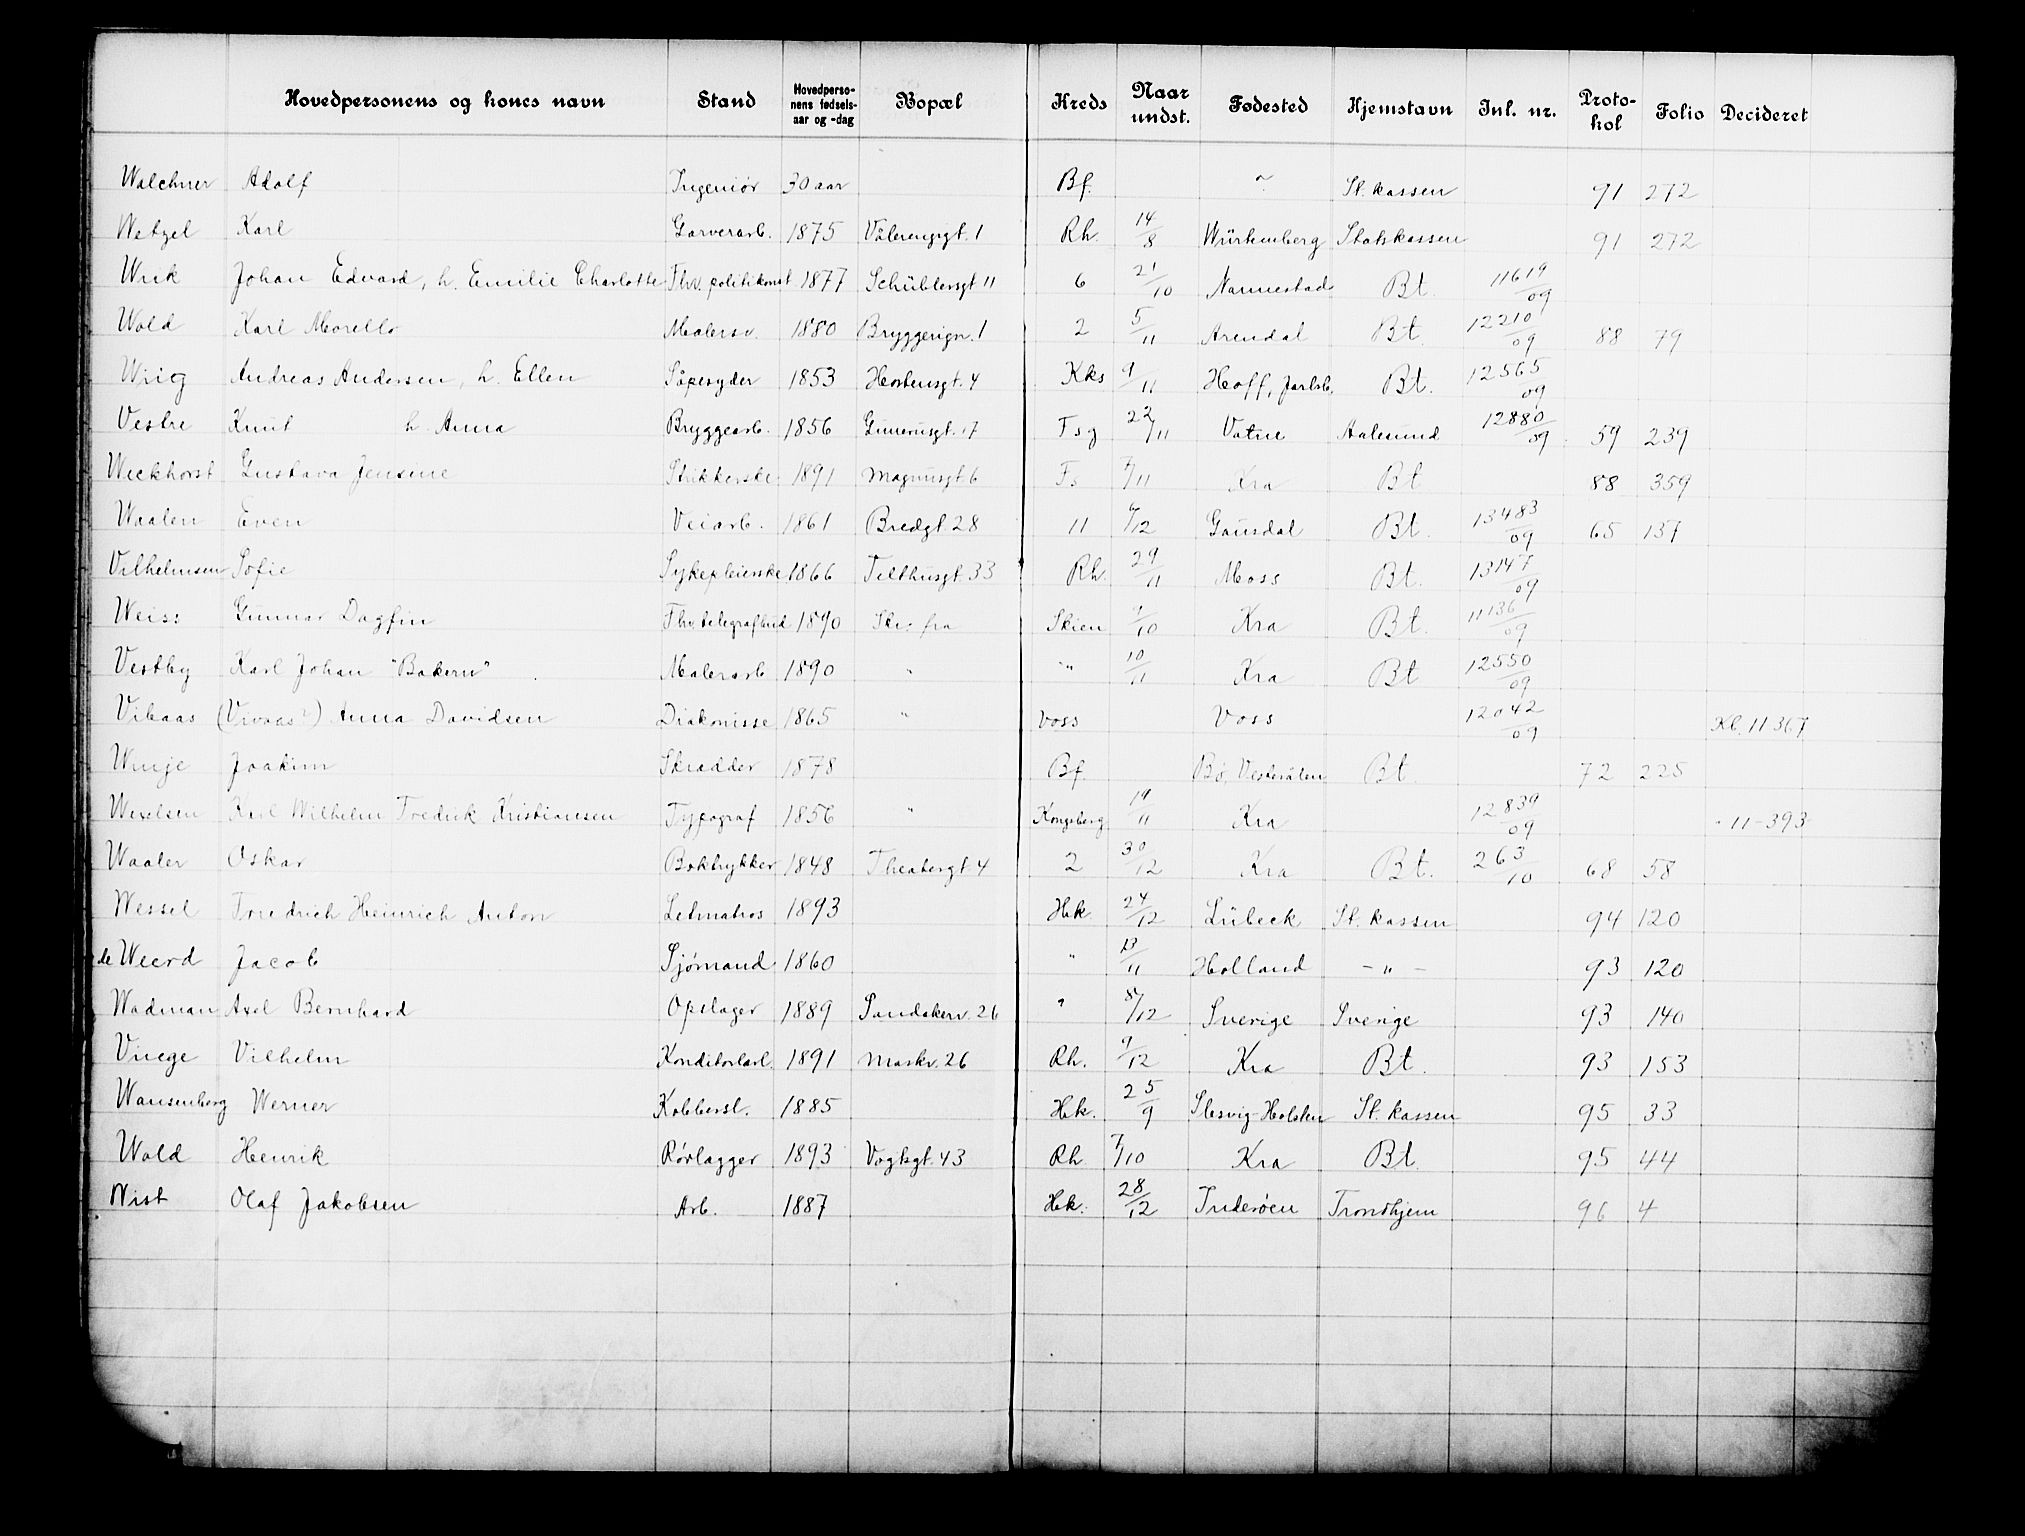 Hovedpersonens og kones navn Stand Hovedpersonens fødselsaar og -dag Bopæl Kreds Naar undst. Fødested Hjemstavn Inl. nr. Protokol Folio Decideret
Walchner Adolf Ingeniør 30 aar Bf. ~ St. kassen 91 272
Wetzel Karl Garverarb. 1875 Vålerenggt. 1 Rh. 14/8 Würtemberg Statskassen 91 272
Wrik Johan Edvard, h. Emilie Charlotte Fhv. politikonst 1877 Schüblersgt 11 6 21/10 Nannestad Bt. 11619/09
Wold Karl Morello Malersv. 1880 Bryggerign. 1 2 5/11 Arendal Bt. 12210/09 88 79
Wiig Andreas Andersen, h. Ellen Såpesyder 1853 Herslebsgt. 4 Kks 9/11 Hoff, Jarlsb. Bt. 12565/09
Vestre Knut h. Anna Bryggearb. 1856 Gunerusgt. 17 Fsg 22/11 Vatne Aalesund 12880/09 59 239
Weckhorst Gustava Jensine Strikkerske 1891 Magnusgt 6 Fs 7/11 Kra Bt 88 359
Waalen Even Veiarb. 1861 Bredgt. 28 11 6/12 Gausdal Bt. 13483/09 65 137
Vilhelmsen Sofie Sykepleierske 1866 Telthusgt. 33 Rh. 29/11 Moss Bt. 13147/09
Weiss Gunnar Dagfin Fhv. telegrafbud 1890 Skr. fra Skien 9/10 Kra Bt. 11136/09
Vestby Karl Johan "Bakern" Malerarb 1890 " " 10/11 Kra Bt 12550/09
Vibaas (Vivaas?) Anna Davidsen Diakonisse 1865 " Voss Voss 12042/09 Kl. 11-367
Winje Joakim Skrædder 1878 Bf. Bø, Vesterålen Bt. 72 225
Wexelsen Karl Wilhelm Fredrik Kristiansen Typograf 1856 " Kongsberg 19/11 Kra 12839/09 " 11-393
Waaler Oskar Boktrykker 1848 Theatergt. 4 2 30/12 Kra Bt. 263/10 68 58
Wessel Friedrich Heinrich Anton Letmatros 1893 Hk. 24/12 Lübeck St. kassen 94 120
de Weerd Jacob Sjømand 1860 " 13/11 Holland - " - 93 120
Wadman Axel Bernhard Opslager 1889 Sandakerv. 26 " 8/12 Sverige Sverige 93 140
Vinge Vilhelm Konditorlærl. 1891 Markv. 26 Rh. 9/12 Kra Bt. 93 153
Wansenberg Werner Kobbersl. 1885 Hk. 25/9 Slesvig-Holsten St. kassen 95 33
Wold Henrik Rørlægger 1893 Vogtsgt. 43 Rh 7/10 Kra Bt. 95 44
Wist Olaf Jakobsen Arb. 1887 Hk. 28/12 Inderøen Trondhjem 96 4